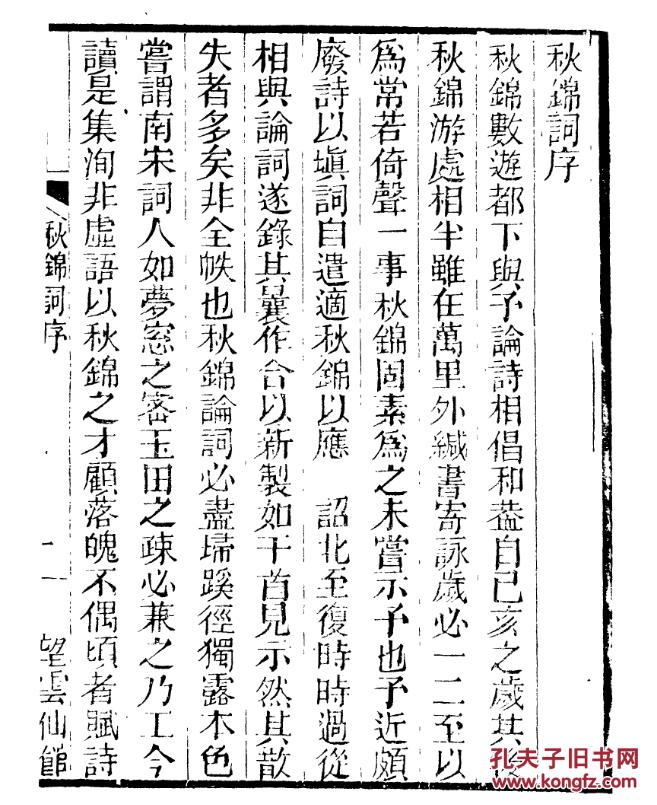 秋錦詞序
秋錦數遊都下與予論詩相倡和葢自己亥之歲其後
秋錦游處相半雖在萬里外緘書寄詠歲必一二至以
爲常若倚聲一事秋錦固素爲之未嘗示予也予近頗
廢詩以塡詞自遣適秋錦以應　詔北至復時時過從
相與論詞遂錄其曩作合以新製如干首見示然其散
失者多矣非全帙也秋錦論詞必盡埽蹊徑獨露本色
嘗謂南宋詞人如夢窓之密玉田之疎必兼之乃工今
讀是集洵非虛語以秋錦之才顧落魄不偶頃者賦詩
秋錦詞序
望雲仙館
孔夫子旧书网
www.kongfz.com